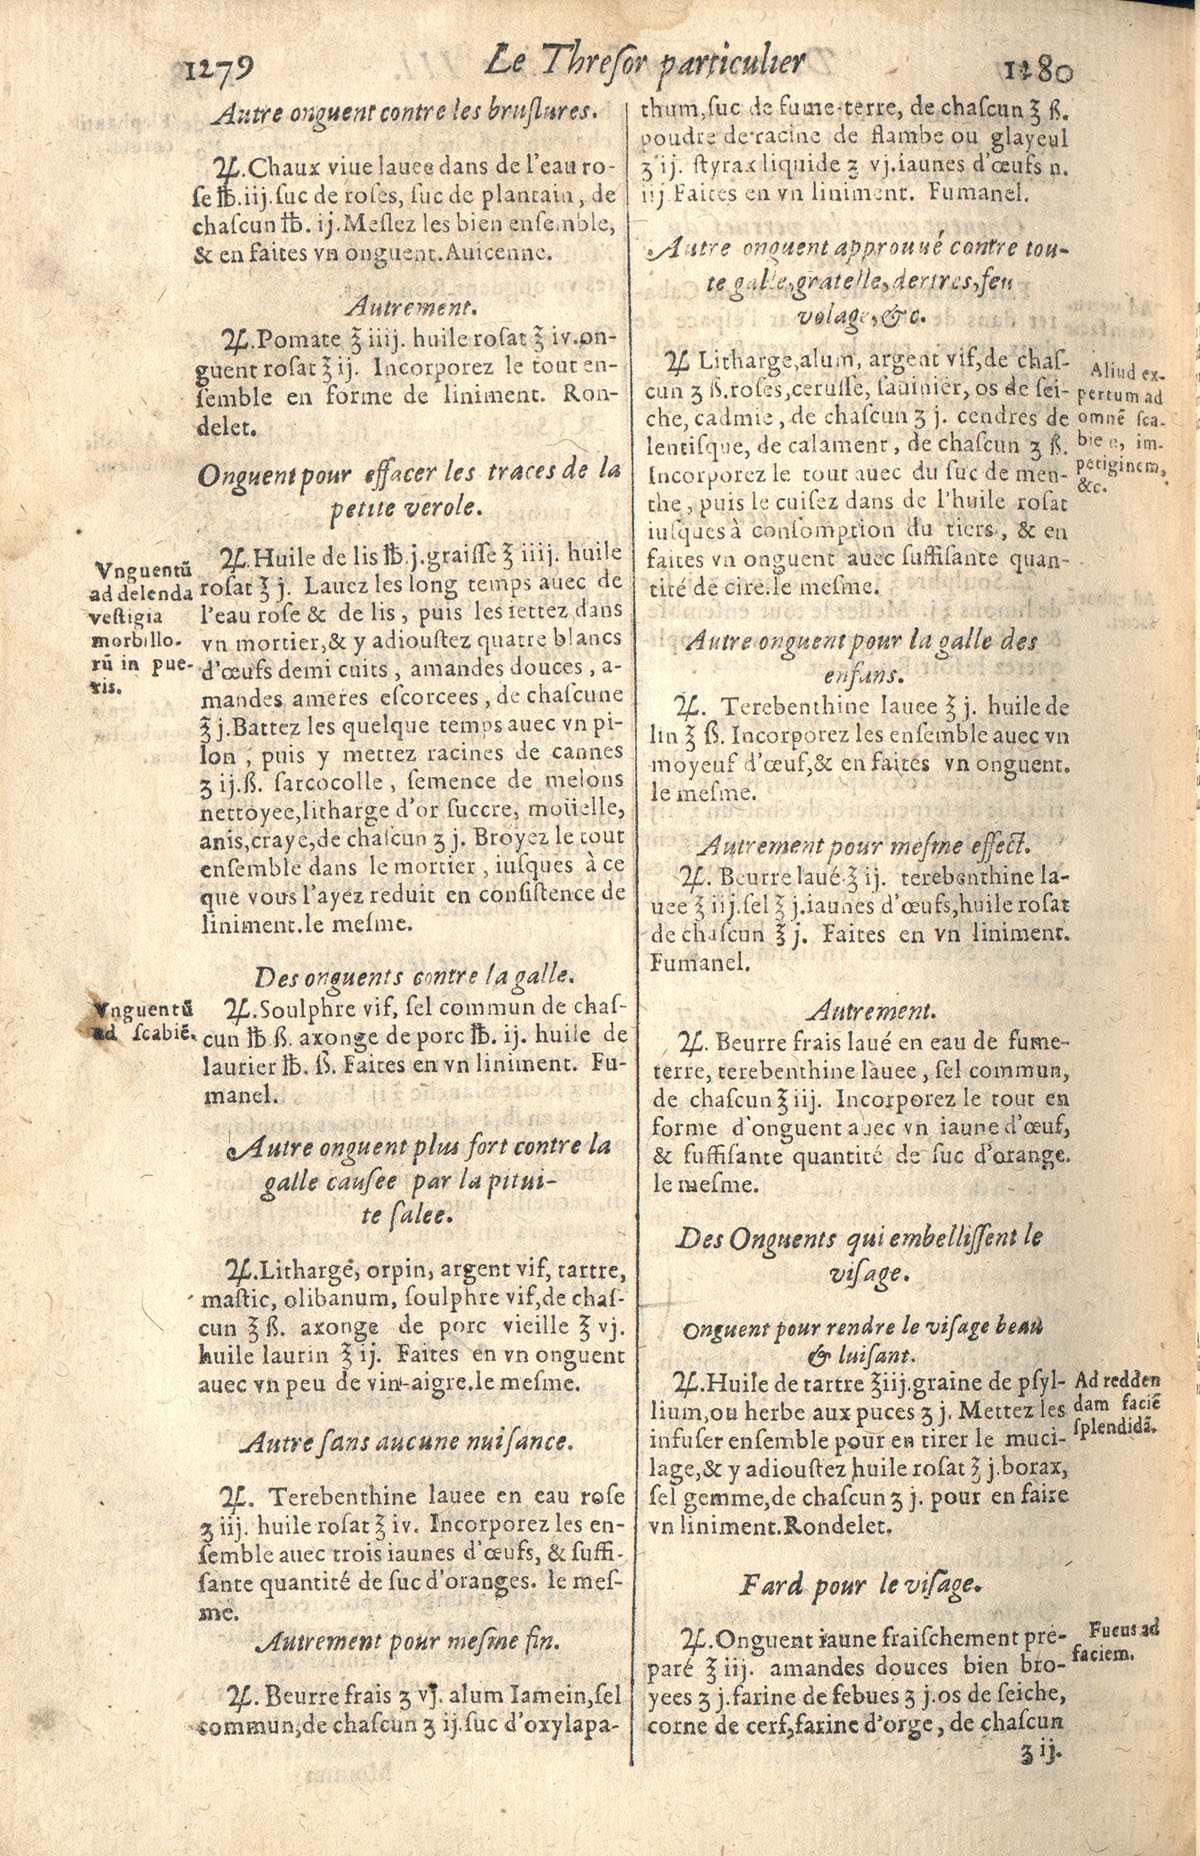 1279
Le Threſor particulier
1280
Autre onguent contre les bruſlures.
♃.Chaux viue lauee dans de l'eau ro-
ſe ℔.iij.ſuc de roſes, ſuc de plantain, de
chaſcun ℔. ij.Meſlez les bien enſemble,
& en faites vn onguent.Auicenne.
Autrement.
♃.Pomate ℥ iiij. huile roſat ℥ iv.on-
guent roſat ℥ ij. Incorporez le tout en-
ſemble en forme de liniment. Ron-
delet.
Onguent pour effacer les traces de la
petite verole.
Vnguentū
ad delenda
veſtigia
morbillo-
rū in pue-
ris.
♃.Huile de lis ℔.j.graiſſe ℥ iiij. huile
roſat ℥ j. Lauez les long temps auec de
l'eau roſe & de lis, puis les iettez dans
vn mortier,& y adiouſtez quatre blancs
d'œufs demi cuits, amandes douces, a-
mandes ameres eſcorcees, de chaſcune
℥ j.Battez les quelque temps auec vn pi-
lon, puis y mettez racines de cannes
ʒ ij.ß. ſarcocolle, ſemence de melons
nettoyee,litharge d'or ſuccre, moüelle,
anis,craye,de chaſcun ʒ j. Broyez le tout
enſemble dans le mortier, iuſques à ce
que vous l'ayez reduit en conſiſtence de
liniment.le meſme.
Des onguents contre la galle.
Vnguentū
ad ſcabiē.
♃.Soulphre vif, ſel commun de chaſ-
cun ℔ ß. axonge de porc ℔. ij. huile de
laurier ℔. ß. Faites en vn liniment. Fu-
manel.
Autre onguent plus fort contre la
galle cauſee par la pitui-
te ſalee.
♃.Lithargé, orpin, argent vif, tartre,
maſtic, olibanum, ſoulphre vif,de chaſ-
cun ℥ ß. axonge de porc vieille ℥ vj.
huile laurin ℥ ij. Faites en vn onguent
auec vn peu de vin-aigre.le meſme.
Autre ſans aucune nuiſance.
♃. Terebenthine lauee en eau roſe
ʒ iij. huile roſat ℥ iv. Incorporez les en-
ſemble auec trois iaunes d'œufs, & ſuffi-
ſante quantité de ſuc d'oranges. le meſ-
me.
Autrement pour meſme fin.
♃. Beurre frais ʒ vj. alum Iamein,ſel
commun,de chaſcun ʒ ij.ſuc d'oxylapa-
thum,ſuc de fume-terre, de chaſcun ℥ ß.
poudre de racine de flambe ou glayeul
ʒ ij. ſtyrax liquide ʒ vj.iaunes d'œufs n.
iij Faites en vn liniment. Fumanel.
Autre onguent approuué contre tou-
te galle,gratelle,dertres,feu
volage,&c.
♃ Litharge,alum, argent vif,de chaſ-
cun ʒ ß.roſes,ceruſſe, ſauinier, os de ſei-
che, cadmie, de chaſcun ʒ j. cendres de
lentiſque, de calament, de chaſcun ʒ ß.
Incorporez le tout auec du ſuc de men-
the, puis le cuiſez dans de l'huile roſat
iuſques à conſomption du tiers, & en
faites vn onguent auec ſuffiſante quan-
tité de cire.le meſme.
Aliud ex-
pertum ad
omnē ſca-
biem, im-
petiginem,
&c.
Autre onguent pour la galle des
enfans.
♃. Terebenthine lauee ℥ j. huile de
lin ℥ ß. Incorporez les enſemble auec vn
moyeuf d'œuf,& en faites vn onguent.
le meſme.
Autrement pour meſme effect.
♃. Beurre laué ℥ ij. terebenthine la-
uee ℥ iij.ſel ℥ j.iaunes d'œufs,huile roſat
de chaſcun ℥ j. Faites en vn liniment.
Fumanel.
Autrement.
♃. Beurre frais laué en eau de fume-
terre, terebenthine lauee, ſel commun,
de chaſcun ℥ iij. Incorporez le tout en
forme d'onguent auec vn iaune d'œuf,
& ſuffiſante quantité de ſuc d'orange.
le meſme.
Des Onguents qui embelliſſent le
viſage.
Onguent pour rendre le viſage beau
& luiſant.
♃.Huile de tartre ℥iij.graine de pſyl-
lium,ou herbe aux puces ʒ j. Mettez les
infuſer enſemble pour en tirer le muci-
lage,& y adiouſtez huile roſat ℥ j.borax,
ſel gemme,de chaſcun ʒ j. pour en faire
vn liniment.Rondelet.
Ad redden
dam faciē
ſplendidā.
Fard pour le viſage.
♃.Onguent iaune fraiſchement pre-
paré ℥ iij. amandes douces bien bro-
yees ʒ j.farine de febues ʒ j.os de ſeiche,
corne de cerf,farine d'orge, de chaſcun
ʒ ij.
Fucus ad
faciem.